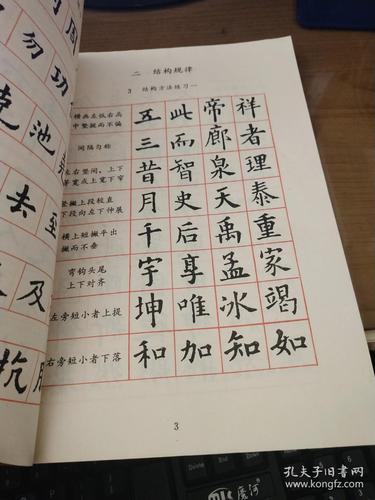 周
勿功
池
去至
及
二 结构规律
3 结构方法练习一
横画左低右高
中竖挺而不偏
五此帝祥
间隔匀称
三而廊者
左右竖间,上下
等宽或上宽下窄
昔智泉理
竖撇上段较直
下段向左下伸展
月史天泰
横上短撇平出
撇而不垂
千后禹重
弯钩头尾
上下对齐
宇享孟家
左旁短小者上提
坤唯冰竭
右旁短小者下落
和加知如
3
孔夫子旧书网
www.kongfz.com